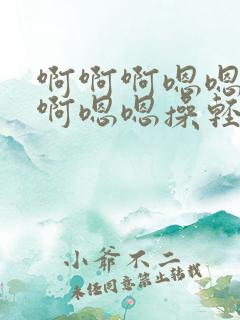 啊啊啊嗯嗯
啊嗯嗯操轻
小爷不二
未经同意禁止转载